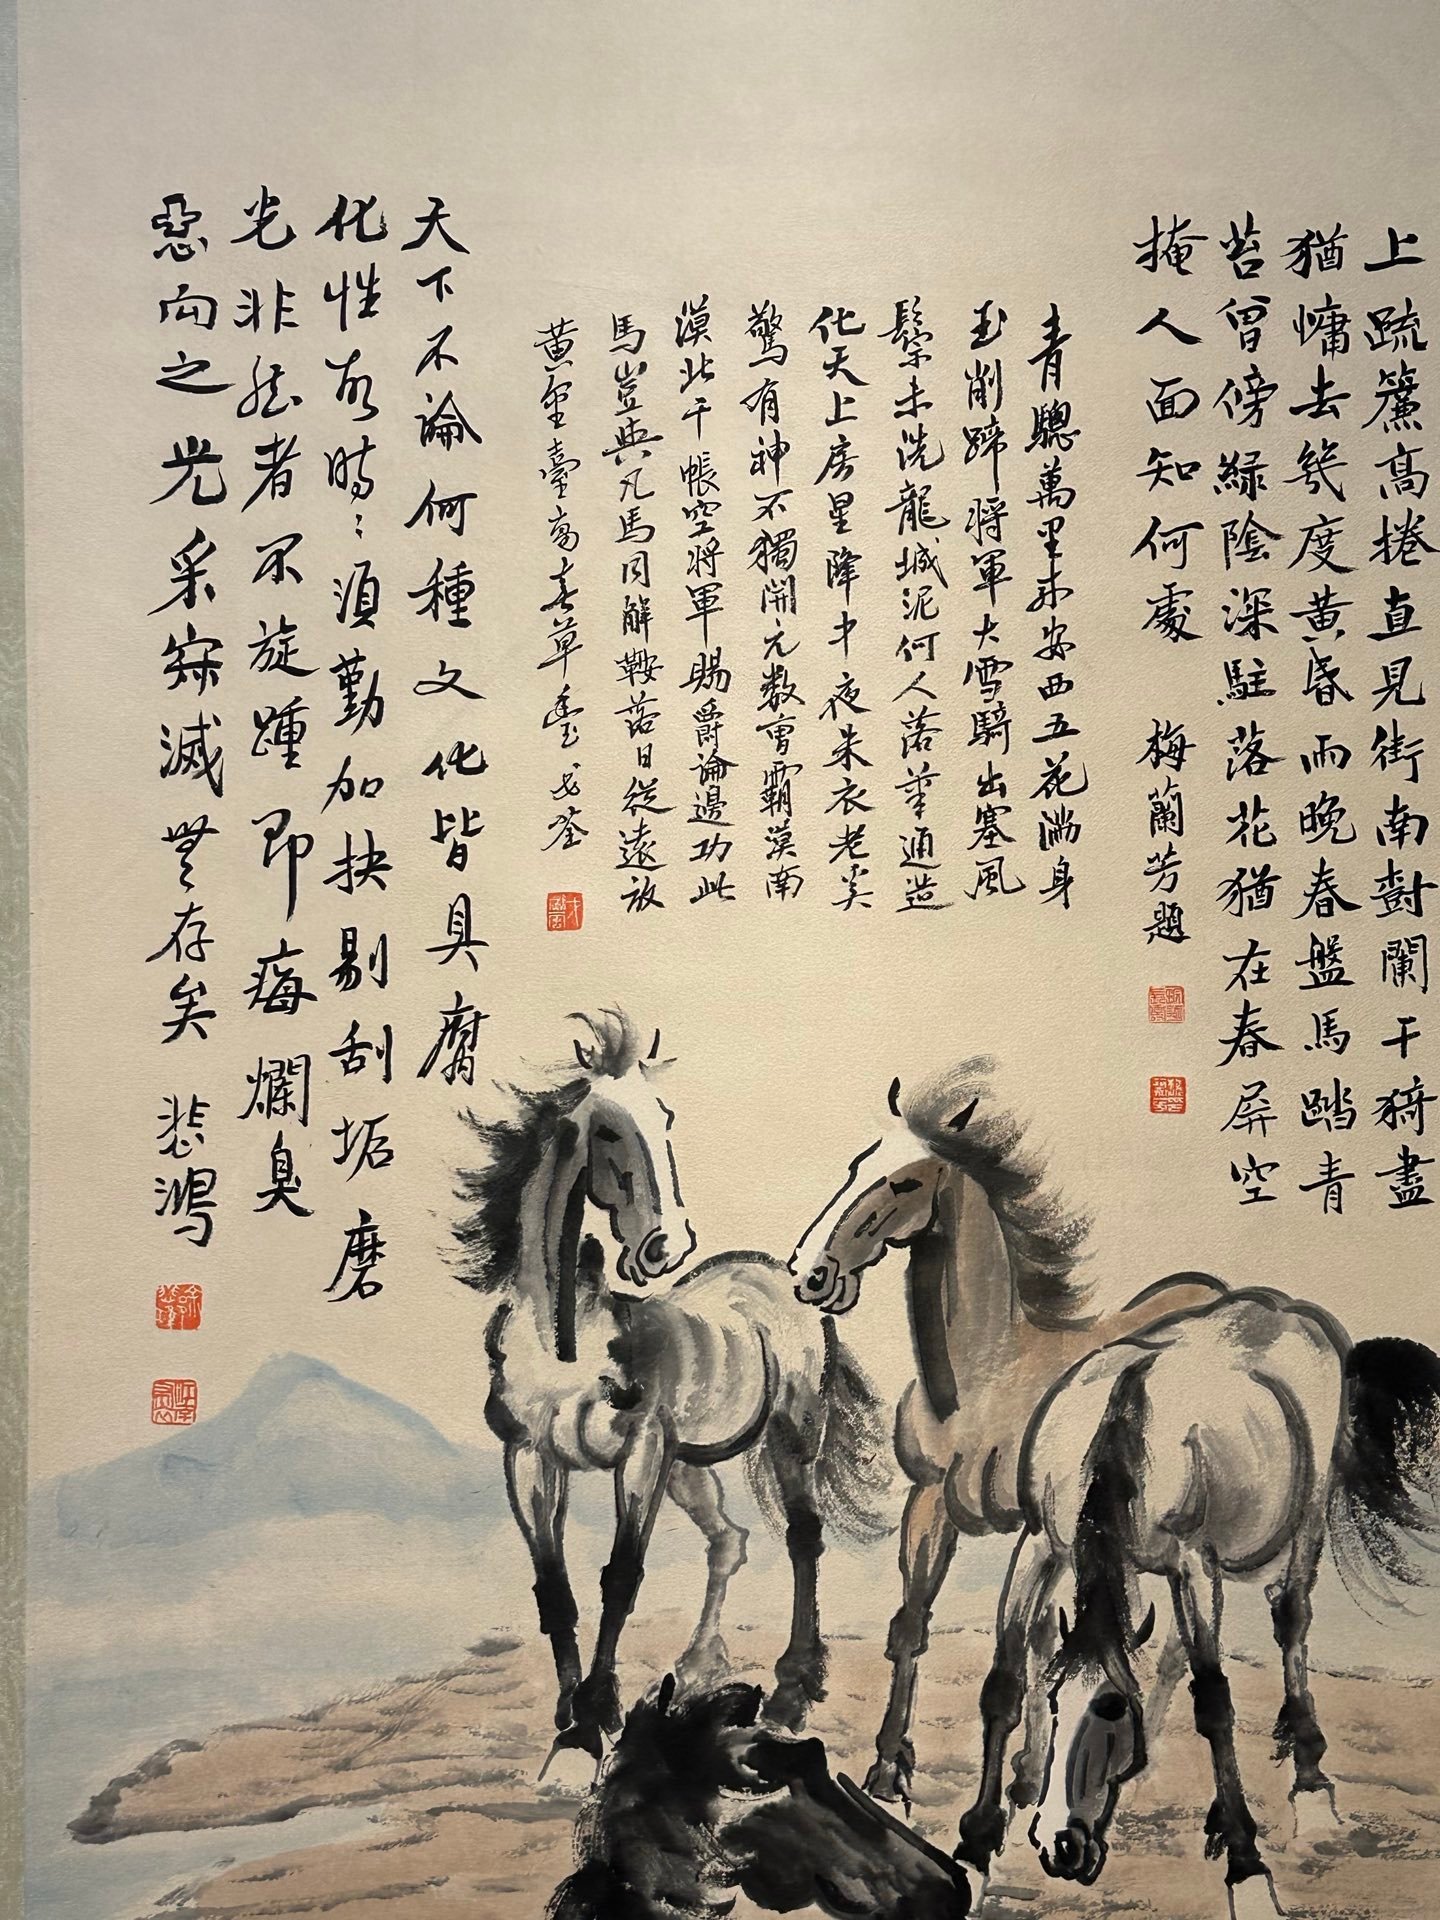 上疏簾高捲直見街南對闌干猗盡
猶慵去幾度黃昏雨晚春盤馬踏青
苔曾傍綠陰深駐落花猶在春屏空
掩人面知何處 梅蘭芳題
青驄萬里來安西五花滿身
玉削蹄將軍大雪騎出塞風
鬃未洗龍城泥何人落筆通造
化天上房星降中夜朱衣老吳
驚有神不獨開元數曹霸漠南
漠北千帳空將軍賜爵論邊功此
馬豈與凡馬同解鞍落日從遠放
黃金臺高春草
天下不論何種文化皆具腐
化性故時時須勤加抉剔刮垢磨
光非然者不旋踵即霉爛臭
惡向之光采寂滅無存矣 悲鴻